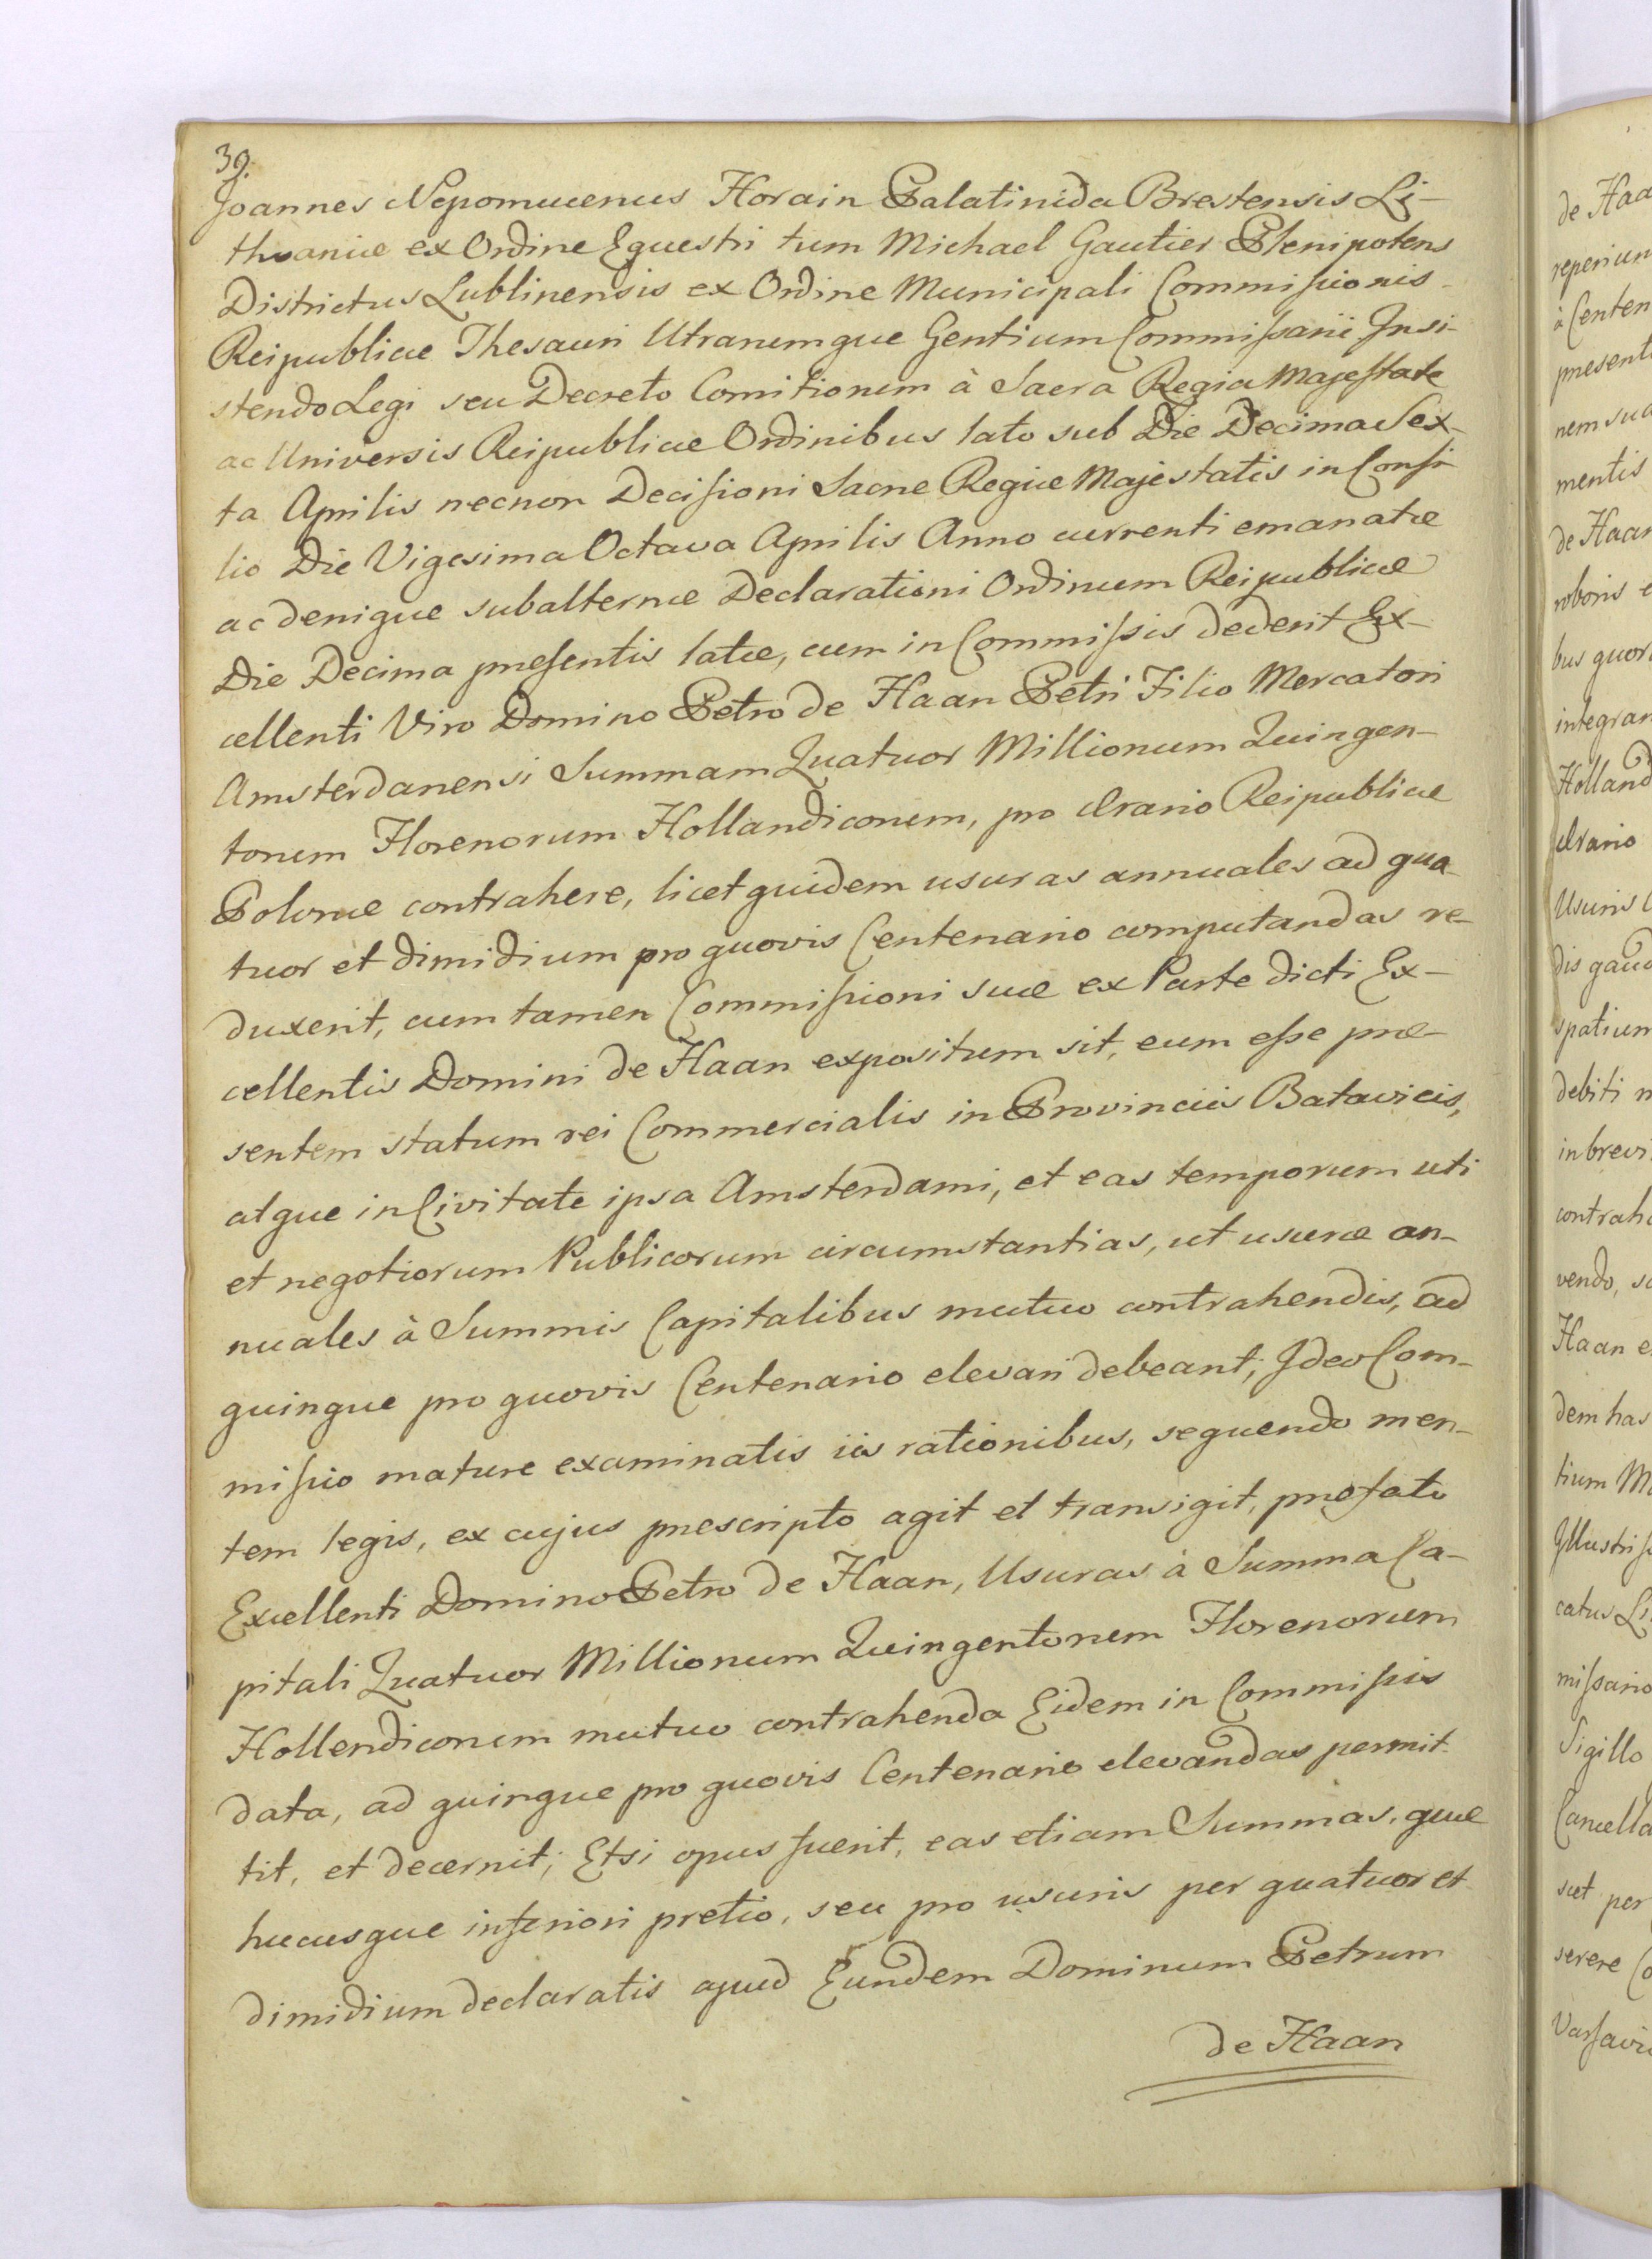 39.
Joannes Nepomucenus Horain Palatinida Brestensis Li-
thvaniæ ex Ordine Equestri tum Michael Gautier Plenipotens
Districtus Lublinensis ex Ordine Municipali Commissionis
Reipublicæ Thesauri Utrarumque Gentium Commissarii Insi-
stendo Legi seu Decreto Comitiorum à Sacra Regia Majestate
ac Universis Reipublicæ Ordinibus lato sub Die Decima Sex-
ta Aprilis necnon Decisioni Sacræ Regiæ Majestatis in Consi-
lio Die Vigesima Octava Aprilis Anno currenti emanatæ
ac denique subalternæ Declarationi Ordinum Reipublicæ
Die Decima præsentis latæ, cum in Commissis dederit Ex-
cellenti Viro Domino Petro de Haan Petri Filio Mercatori
Amsterdanensi Summam Quatuor Millionum Quingen-
torum Florenorum Hollandicorum, pro Ærario Reipublicæ
Polonæ contrahere, licet quidem usuras annuales ad qua-
tuor et dimidium pro quovis Centenario computandas re-
duxerit, cum tamen Commissioni suæ ex Parte dicti Ex-
cellentis Domini de Haan expositum sit, eum esse præ-
sentem statum rei Commercialis in Provinciis Batavicis,
atque in Civitate ipsa Amsterdami, et eas temporum uti
et negotiorum Publicorum circumstantias, ut usuræ an-
nuales à Summis Capitalibus mutuo contrahendis, ad
quinque pro quovis Centenario elevari debeant; Ideo Com-
missio mature examinatis iis rationibus, sequendo men-
tem legis, ex cujus præscripto agit et transigit, præfato
Excellenti Domino Petro de Haan, Usuras à Summa Ca-
pitali Quatuor Millionum Quingentorum Florenorum
Hollendicorum mutuo contrahenda Eidem in Commissis
data, ad quinque pro quovis Centenario elevandas permit-
tit, et decernit; Etsi opus fuerit, eas etiam Summas, quæ
hucusque inferiori pretio, seu pro usuris per quatuor et
dimidium declaratis apud Eundem Dominum Petrum
de Haan
de Haa
reperiun
à Centen
presenti
nem sua
mentis
de Haan
roboris e
bus quor
integran
Holland
Ærario
Usuris
dis gaud
spatium
debiti n
in brevi
contrah
vendo, s
Haan e
dem has
tium M
Illustriss
catus Li
missario
Sigillo
Cancella
suet per
serere Co
Varsavi